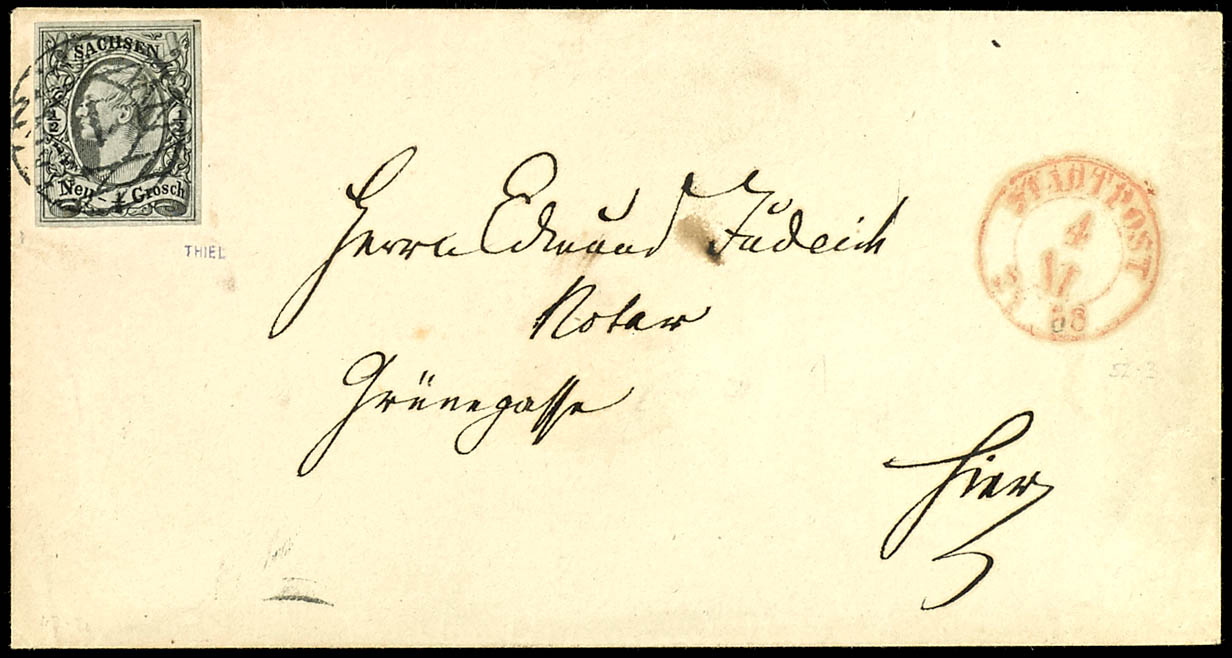 SACHSEN
½ ½
Neu- ½ Grosch
THIEL
Herrn Edmund Judeich
Notar
Grünegasse
Hier
STADTPOST
4
VI
58